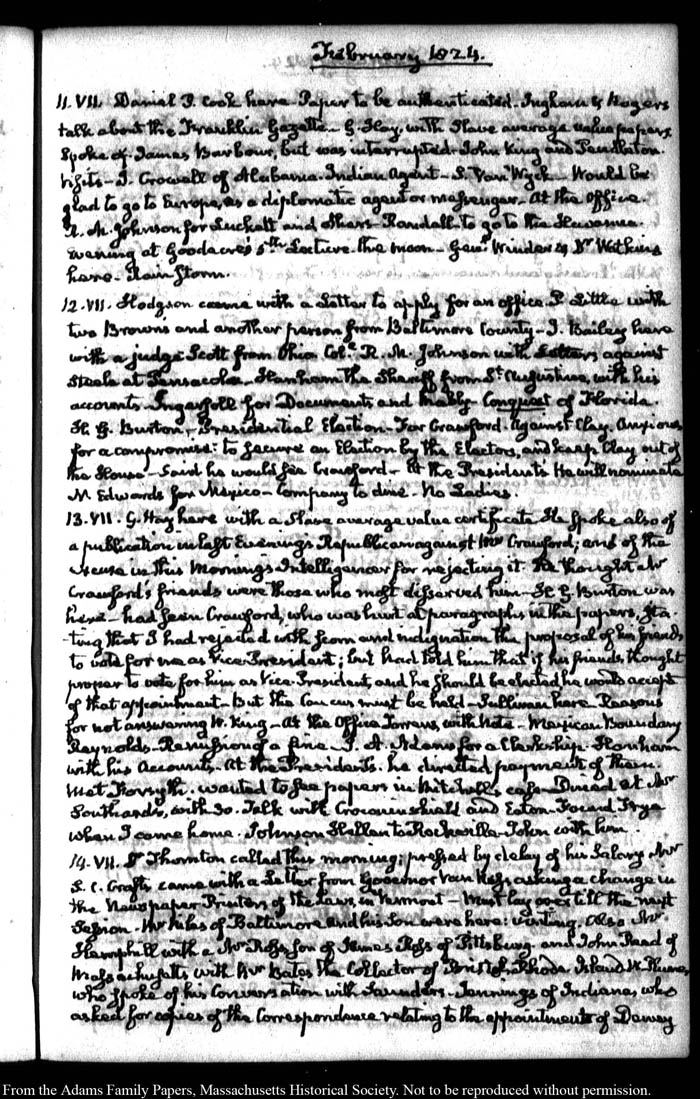 February 1824.
11. VII. Daniel P. Cook here. Paper to be authenticated. Ingham & Rogers
talk about the Franklin Gazette – G. Hay, with Slave average value papers
Spoke of James Barbour, but was interrupted. John King and Pendleton.
Visits – J. Crowell of Alabama. Indian Agent – S. Van Wyck. Would be
glad to go to Europe, as a diplomatic agent or messenger. At the Office.
R. M. Johnson for Luckett and Shart. Randall to go to the Havanna.
Evening at Goodacre's 5th Lecture. the moon – Genl. Winder & Dr Watkins
here. Rain Storm.
12. VII. Hodgson came with a Letter to apply for an office. P. Little with
two Browns and another person from Baltimore County – J. Bailey here
with a judge Scott from Ohio. Coll. R. M. Johnson with Letters against
Steele at Pensacola. Hanham the Sheriff from St. Augustine, with his
accounts. Ingersoll for Documents and Mably. Conquest of Florida.
H. G. Burton, – Presidential Election – For Crawford. Against Clay. Anxious
for a compromise: to secure an Election by the Electors, and keep Clay out of
the House – Said he would see Crawford – At the President's He will nominate
N. Edwards for Mexico – Company to dine – No Ladies.
13. VII. G. Hay here with a Slave average value certificate. He spoke also of
a publication in last Evening's Republican against Mr Crawford; and of the
excuse in this Morning's Intelligencer for rejecting it. He thought Mr
Crawford's friends were those who most disserved him – H. G. Burton was
here – had seen Crawford, who was hurt at paragraphs in the papers, sta-
-ting that I had rejected with scorn and indignation the proposal of his friends
to vote for me as Vice-President; but had told him that if his friends thought
proper to vote for him as Vice-President, and he should be elected he would accept
of that appointment – But the Caucus must be held – Sullivan here. Reasons
for not answering W. King – At the Office Torrens, with Note – Mexican Boundary
Reynolds. Remission of a fine – J. A. Adams for a Clerkship. Hanham
with his Accounts. At the President's. he directed payment of them.
Met Forsyth. wanted to see papers in Mitchell's case – Dined at Mr
Southard's, with 30. Talk with Crowninshield and Eaton – Foeard Frye
when I came home. Johnson Hellen to Rockville – John with him.
14. VII. Dr Thornton called this morning; pressed by delay of his Salary. Mr
S. C. Crafts came with a Letter from Governor Van Ness, asking a change in
the Newspaper Printers of the Laws, in Vermont – Must lay over till the next
Session. Mr Niles of Baltimore and his Son were here: visiting. Also Mr
Hemphill with a Mr Ross, son of James Ross of Pittsburg. and John Reed of
Massachusetts with Mr Bates the Collector of Bristol, Rhode Island. W. Plumer,
who spoke of his Conversation with Saunders – Jennings of Indiana, who
asked for copies of the Correspondence relating to the appointments of Dewey
From the Adams Family Papers, Massachusetts Historical Society. Not to be reproduced without permission.